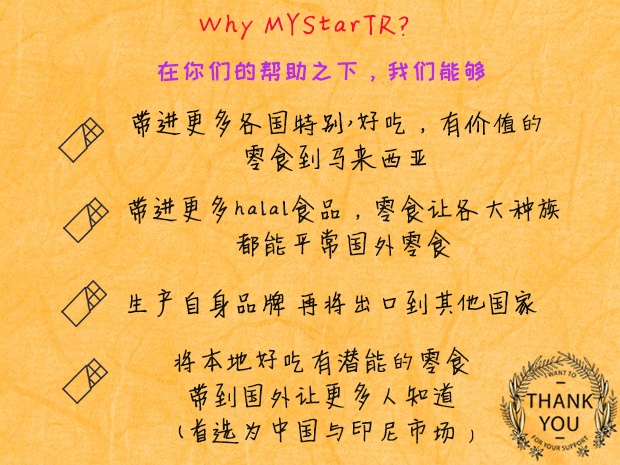 Why MYStarTR?
在你们的帮助之下，我们能够
带进更多各国特别,好吃，有价值的
零食到马来西亚
带进更多halal食品，零食让各大种族
都能平常国外零食
生产自身品牌 再将出口到其他国家
将本地好吃有潜能的零食
带到国外让更多人知道
(首选为中国与印尼市场）
I WANT TO
THANK
YOU
FOR YOUR SUPPORT